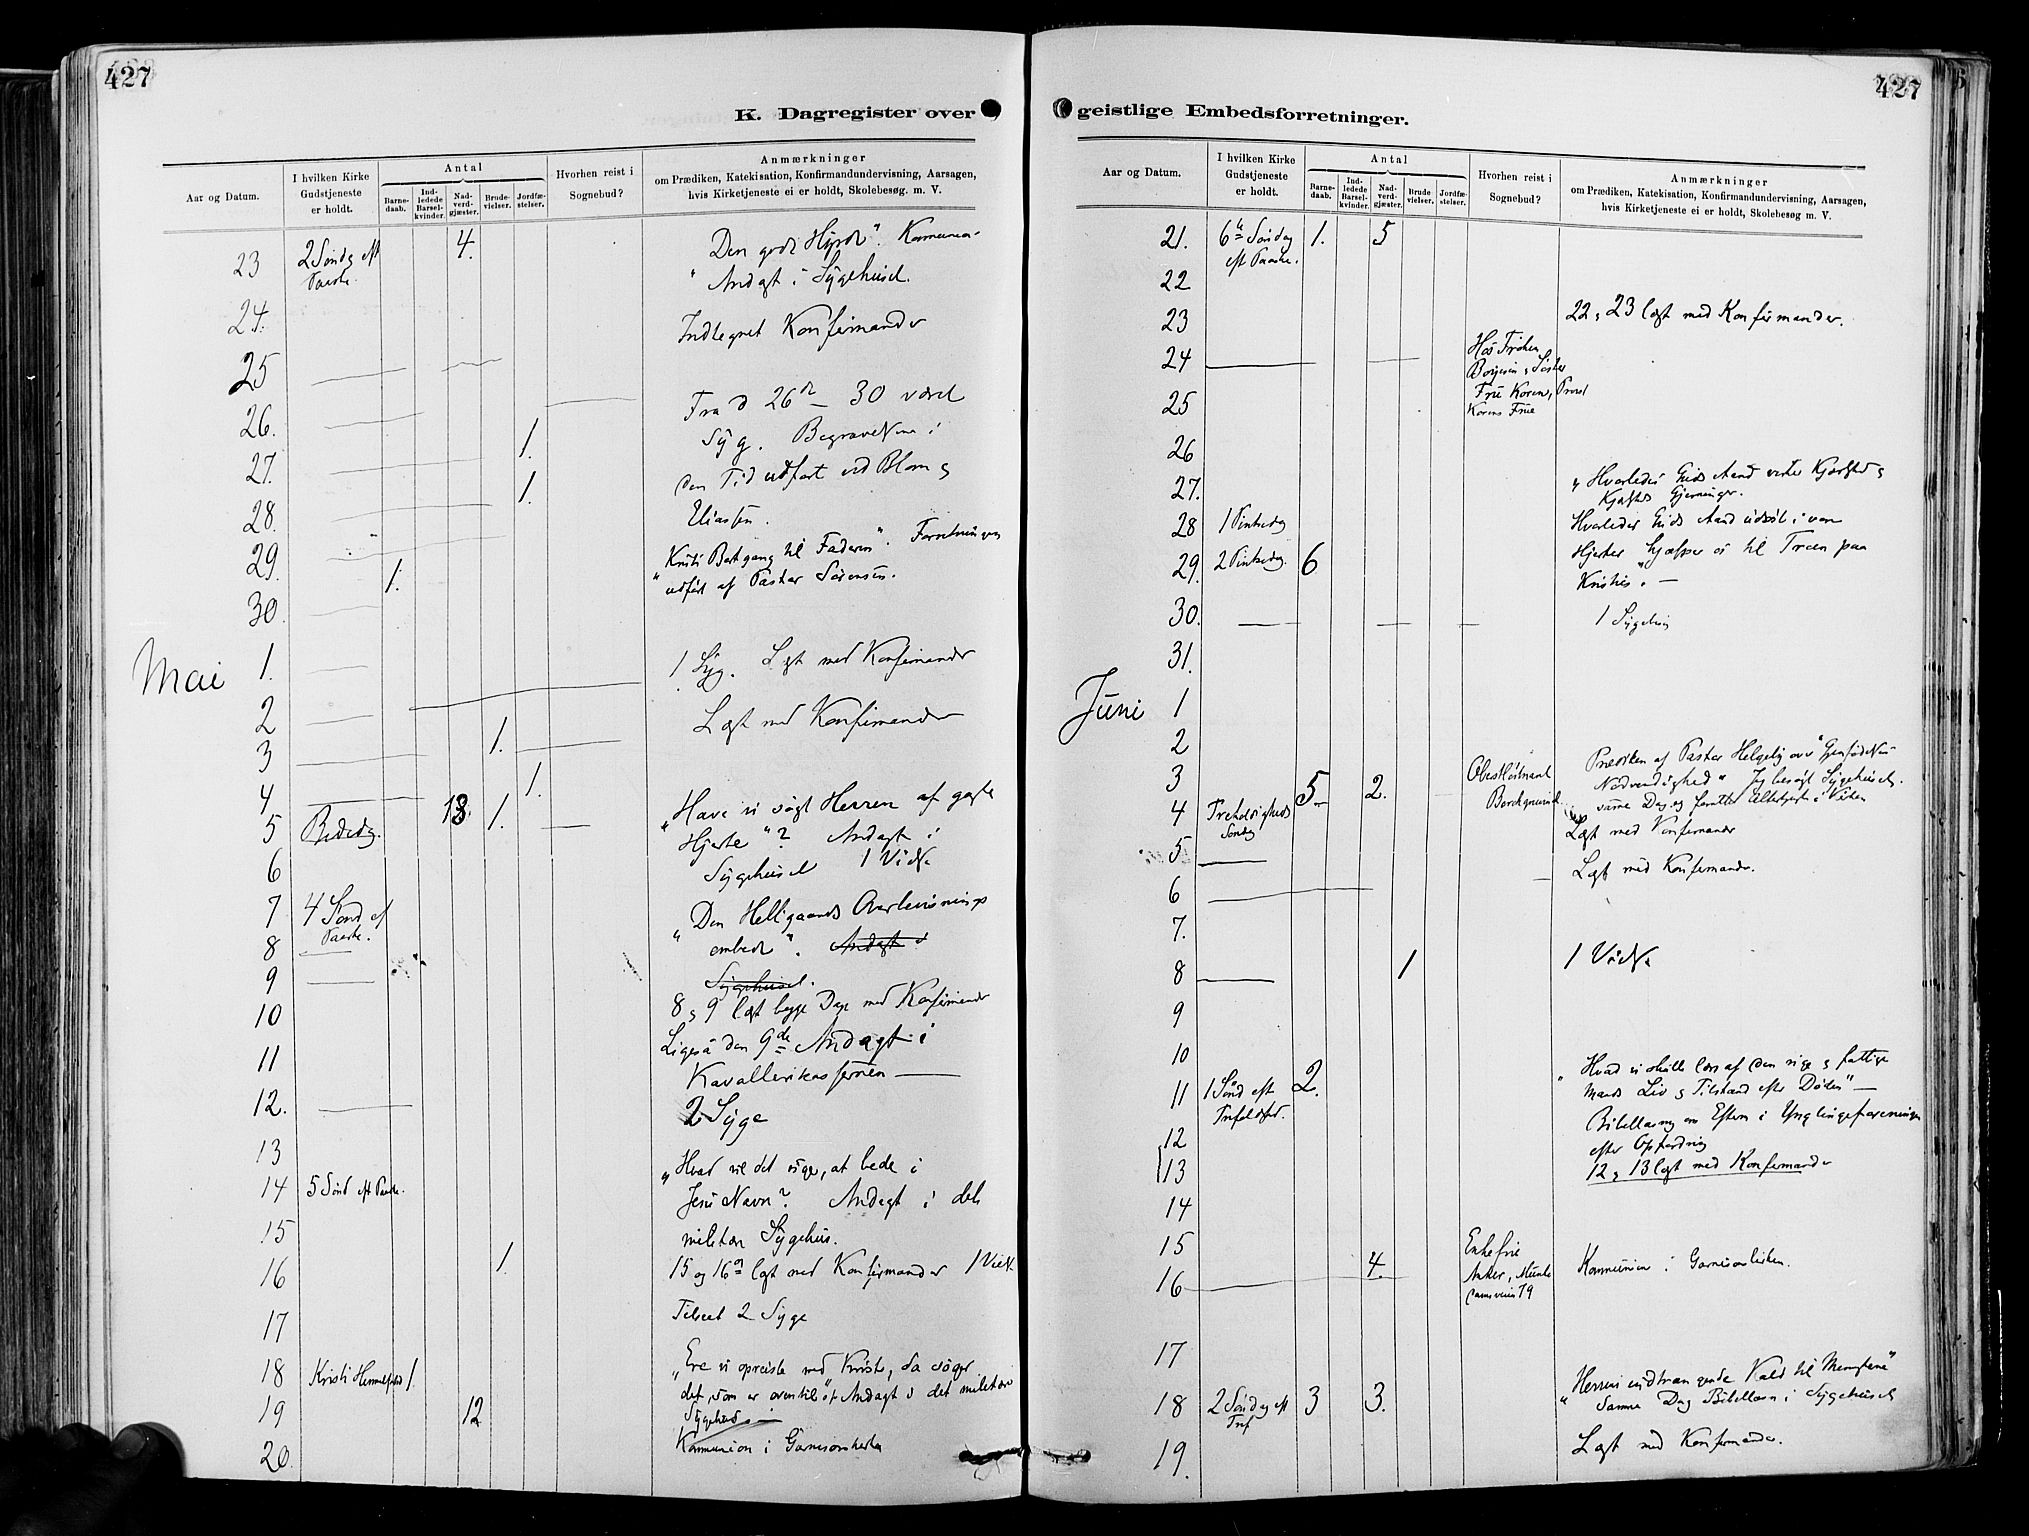 427
K. Dagregister over
Aar og Datum.
I hvilken Kirke Gudstjeneste er holdt.
Antal
Barne-daab.
Ind-ledede Barsel-kvinder.
Nad-verd-gjæster.
Brude-vielser.
Jordfæ-stelser.
Hvorhen reist i Sognebud?
Anmærkninger
om Prædiken, Katekisation, Konfirmandundervisning, Aarsagen,
hvis Kirketjeneste ei er holdt, Skolebesøg. m. V.
23 2 Sønd eft Paaske 4. "Den gode Hyrde".
Andagt i Sygehuset.
24. Indtegnet Konfirmander
25
Fra d 26de – 30 været
26. 1. Syg. Begravelserne i
27. 1. den Tid udført ved Blom og
28. Eliassen.
Kristi Bortgang til Faderen". Forretningen
29. 1. udført af Pastor Sørensen.
30.
Mai 1. 1 Syg. Læst med Konfirmander
2 Læst med Konfirmander
3 1.
4 1.
5 Bededag. 13. 1. "Have vi søgt Herren af ganske
Hjerte"? Andagt i
6 Sygehuset 1 Vielse
7 4 Sønd ef Paaske. "Den Helligaands Overbevisnings
8 embede". Andagt i
9 Sygehuset.
10 8 og 9 læst begge Dage med Konfirmander
Ligesaa den 9de Andagt i
11 Kavallerikasernen
12. 2 Syge
13 "Hvad vil det sige, at bede i
14 5 Sønd eft Paaske. Jesu Navn? Andagt i det
15 militære Sygehus.
16 1. 15 og 16de læst med Konfirmander 1 Viels
17 Tilseet 2 Syge
18 Kristi Himmelfart 1. "Ere vi opreiste med Kristo, da søger
det, som er oventil" Andagt i det militære
19 12 Sygehus
20. Kommunion i Garnisonskirken
427
geistlige Embedsforretninger.
Aar og Datum.
I hvilken Kirke Gudstjeneste er holdt.
Antal
Barne-daab.
Ind-ledede Barsel-kvinder.
Nad-verd-gjæster.
Brude vielser.
Jordfæ-stelser.
Hvorhen reist i Sognebud?
Anmærkninger
om Prædiken, Katekisation, Konfirmandundervisning, Aarsagen,
hvis Kirketjeneste ei er holdt, Skolebesøg m. V.
21. 6te Søndag eft Paaske. 1. 5
22
23 22 og 23 læst med Konfirmander.
24 Hos Frøken
Søster
25 Fru Koren, Provst
Korens Frue
26
27. "Hvorledes Guds Aand virker
Gjerninger.
28 1 Pintsedag Hvorledes Guds Aand i vore
29. 2 Pintsedag. 6 Hjerter hjælper os til Troen paa
Kristus". —
30. 1 Sygebesøg
31.
Juni 1
2
3 Prædiken af Pastor
Nødvendighed" Jeg besøgt Sygehuset.
4 Trefoldigheds Søndag 5 2. Oberstløitnant samme Dag og forrettet Altertjeneste i Kirken
Læst med Konfirmander
5
Læst med Konfirmander.
6
7.
8 1 1 Vielse
9
10
"Hvad vi skulle lære af den rige og fattige
11 1 Sønd eft Trefoldhed. 2. Mands Liv og Tilstand efter Døden" —
Bibellæsning om Eftern i Ynglingeforeningen
12 efter Opfordring
13 12 og 13 læst med Konfirmander
14
15 Enkefrue
16 4. Anker, Munke damsveien 79 Kommunion i Garnisonskirken.
17
"Herrens indtrængende Kald til Menneskene"
18 2 Søndag eft Tref 3 3. Samme Dag Bibellæsn i Sygehuset
19. Læst med Konfirmander.